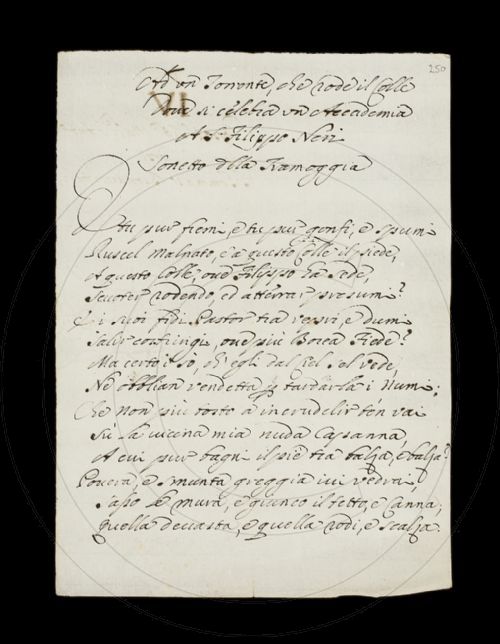 250
Ad un Torrente, che rode il Colle
Dove si celebra un Accademia
A S. Filippo Neri
Sonetto della Tramoggia
E tu pur fiemi, e tu pur gonfi, e spumi
Ruscel malnato, e a questo Colle il piede,
A questo Colle, ove Filippo ha sede,
Scuoter rodendo, ed atterrar presumi?
E i suoi fidi Pastor tra vepri, e dumi
Salir costringi, ove più Borea fiede?
Ma certo i so, ch'egli dal Ciel sel vede,
Ne obblian vendetta p tardarla i Numi;
Che non più tosto a incrudelir ten vai
Su la vicina mia nuda Capanna,
A cui pur bagni il piè tra balza, e balza?
Povera, e smunta greggia ivi vedrai,
Sasso le mura, e giunco il tetto, e canna,
Quella devasta, e quella rodi, e scalza.